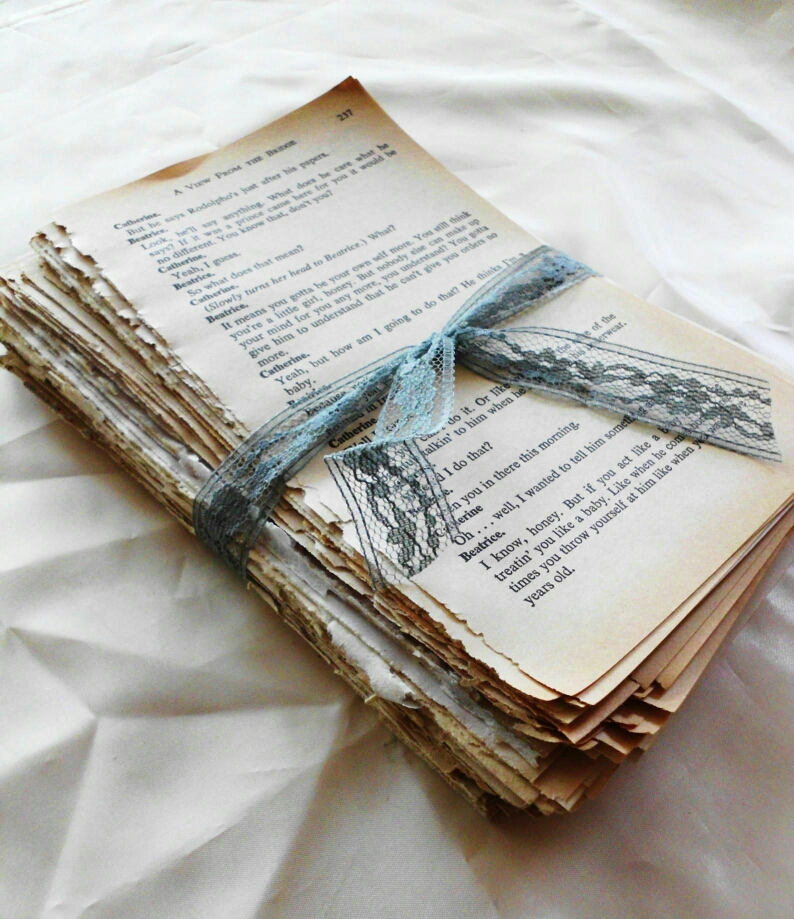 237
A VIEW FROM THE BRIDGE
Catherine.
But he says Rodolpho's just after his papers.
Beatrice.
Look, he'll say anything. What does he care what he
says? If it was a prince came here for you it would be
no different. You know that, don't you?
Catherine.
Yeah, I guess.
Beatrice.
So what does that mean?
Catherine.
(Slowly turns her head to Beatrice.) What?
Beatrice.
It means you gotta be your own self more. You still think
you're a little girl, honey. But nobody else can make up
your mind for you any more, you understand? You gotta
give him to understand that he can't give you orders
more.
Catherine.
Yeah, but how am I going to do that? He thinks I'm
baby.
Beatrice.
because
of the
underwear.
Catherine
do it. Or like
talkin' to him when he
I do that?
you in there this morning.
Oh . . . well, I wanted to tell him
Beatrice.
I know, honey. But if you act like a
treatin' you like a baby. Like when he
times you throw yourself at him like when
years old.